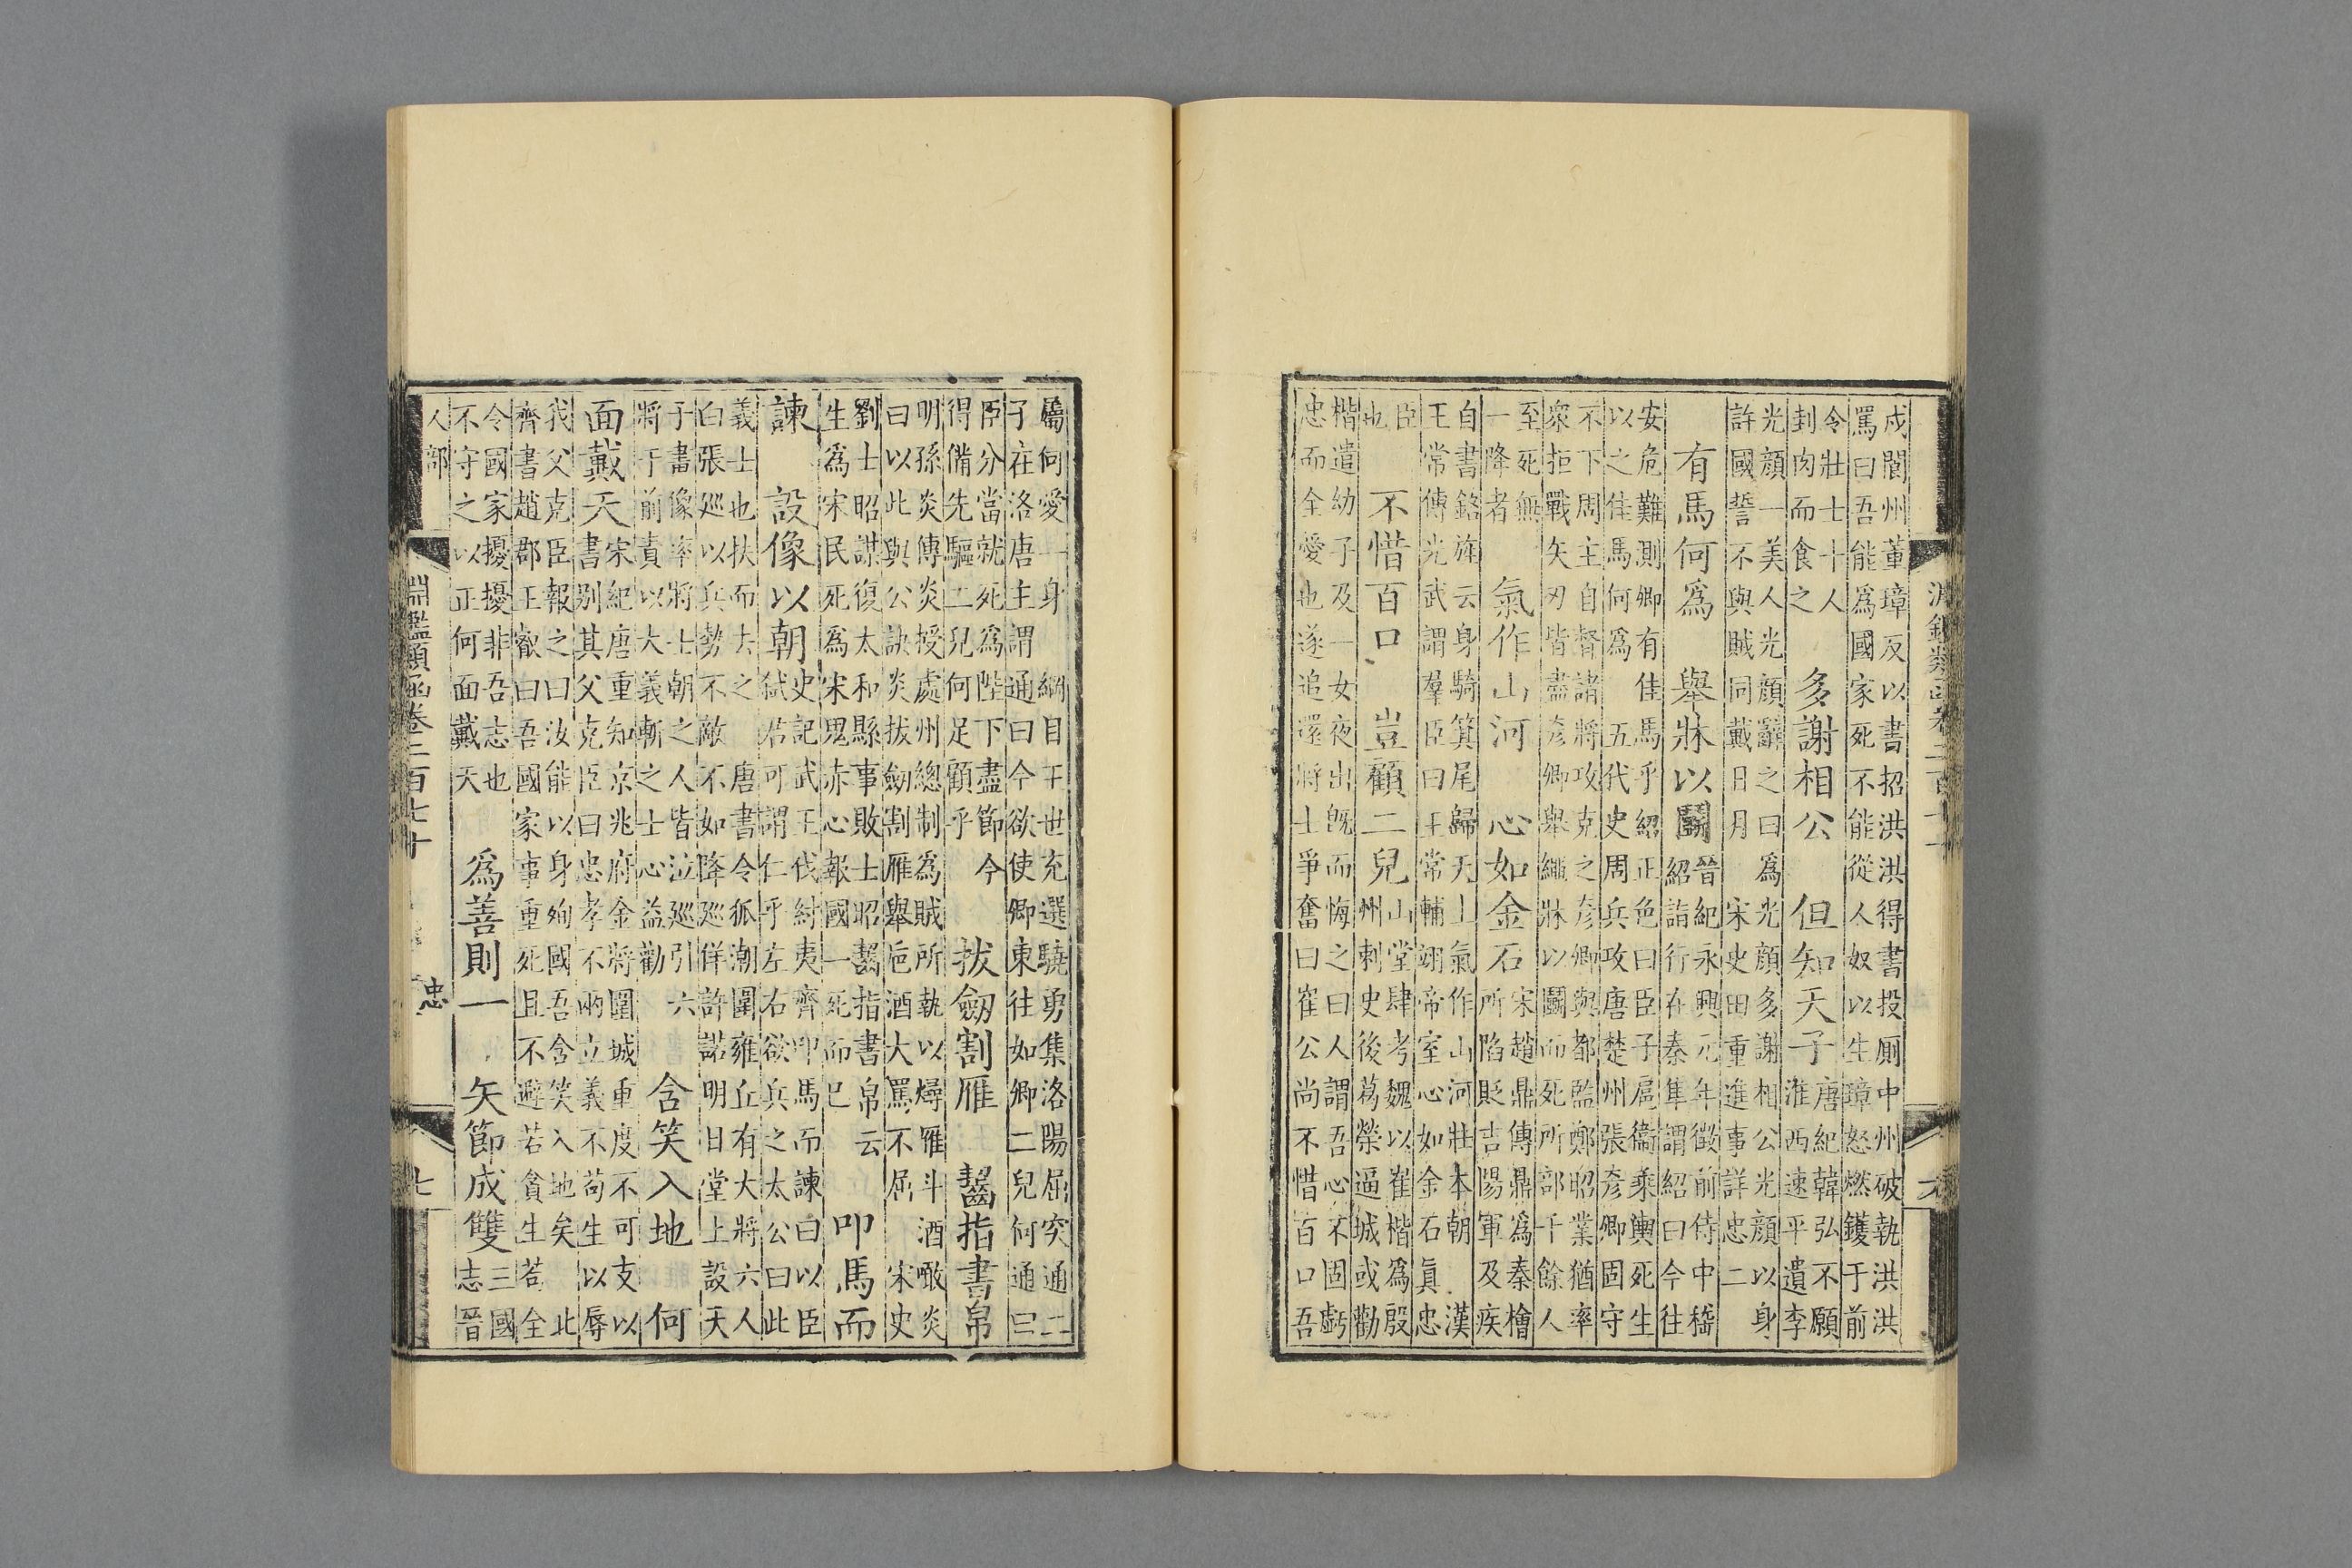 淵鑑類函卷二百七十
六
戍閬州董璋反以書招洪洪得書投厠中州破執洪洪
罵曰吾能為國家死不能從人奴以生璋怒燃鑊于前
令壯士十人
刲肉而食之
多謝相公 但知天子
唐紀韓弘不願
淮西速平遺李
光顔一美人光顔辭之曰為光顔多謝相公光顔以身
許國誓不與賊同戴日月 宋史田重進事詳忠二
有馬何為 舉牀以鬭
晉紀永興元年徵前侍中嵇
紹詣行在秦隼謂紹曰今往
安危難則卿有佳馬乎紹正色曰臣子扈衞乘輿死生
以之佳馬何為 五代史周兵攻唐楚州張彥卿固守
不下周主自督諸將攻克之彥卿與都監鄭昭業猶率
衆拒戰矢刃皆盡彥卿舉繩牀以鬭而死所部千餘人
至死無
一降者
氣作山河 心如金石
宋趙鼎傳鼎為秦檜
所陷貶吉陽軍及疾
自書銘旌云身騎箕尾歸天上氣作山河壯本朝 漢
王常傳光武謂羣臣曰王常輔翊帝室心如金石眞忠
臣
也
不惜百口 豈顧二兒
山堂肆考魏以崔楷為殷
州刺史後葛榮逼城或勸
楷遣幼子及一女夜出旣而悔之曰人謂吾心不固虧
忠而全愛也遂追還將士爭奮曰崔公尚不惜百口吾
屬何愛一身 綱目王世充選驍勇集洛陽屈突通二
子在洛唐主謂通曰今欲使卿東往如卿二兒何通曰
臣分當就死為陛下盡節今
得備先驅二兒何足顧乎
拔劒割雁 齧指書帛
明孫炎傳炎授處州總制為賊所執以燖雁斗酒噉炎
曰以此與公訣炎拔劒割雁舉巵酒大罵不屈 宋史
劉士昭謀復太和縣事敗士昭齧指書帛云
生為宋民死為宋鬼赤心報國一死而已
叩馬而
諫 設像以朝
史記武王伐紂夷齊叩馬而諫曰以臣
弑君可謂仁乎左右欲兵之太公曰此
義士也扶而去之 唐書令狐潮圍雍丘有大將六人
白張巡以兵勢不敵不如降巡佯許諾明日堂上設天
子畫像率將士朝之人皆泣巡引六
將于前責以大義斬之士心益勸
含笑入地 何
面戴天
宋紀唐重知京兆府金將圍城重度不可支以
書別其父克臣曰忠孝不兩立義不苟生以辱
我父克臣報之曰汝能以身殉國吾含笑入地矣 北
齊書趙郡王叡曰吾國家事重死且不避若貪生苟全
令國家擾擾非吾志也
不守之以正何面戴天
為善則一 矢節成雙
三國
志晉
人部
淵鑑類函卷二百七十
忠
七